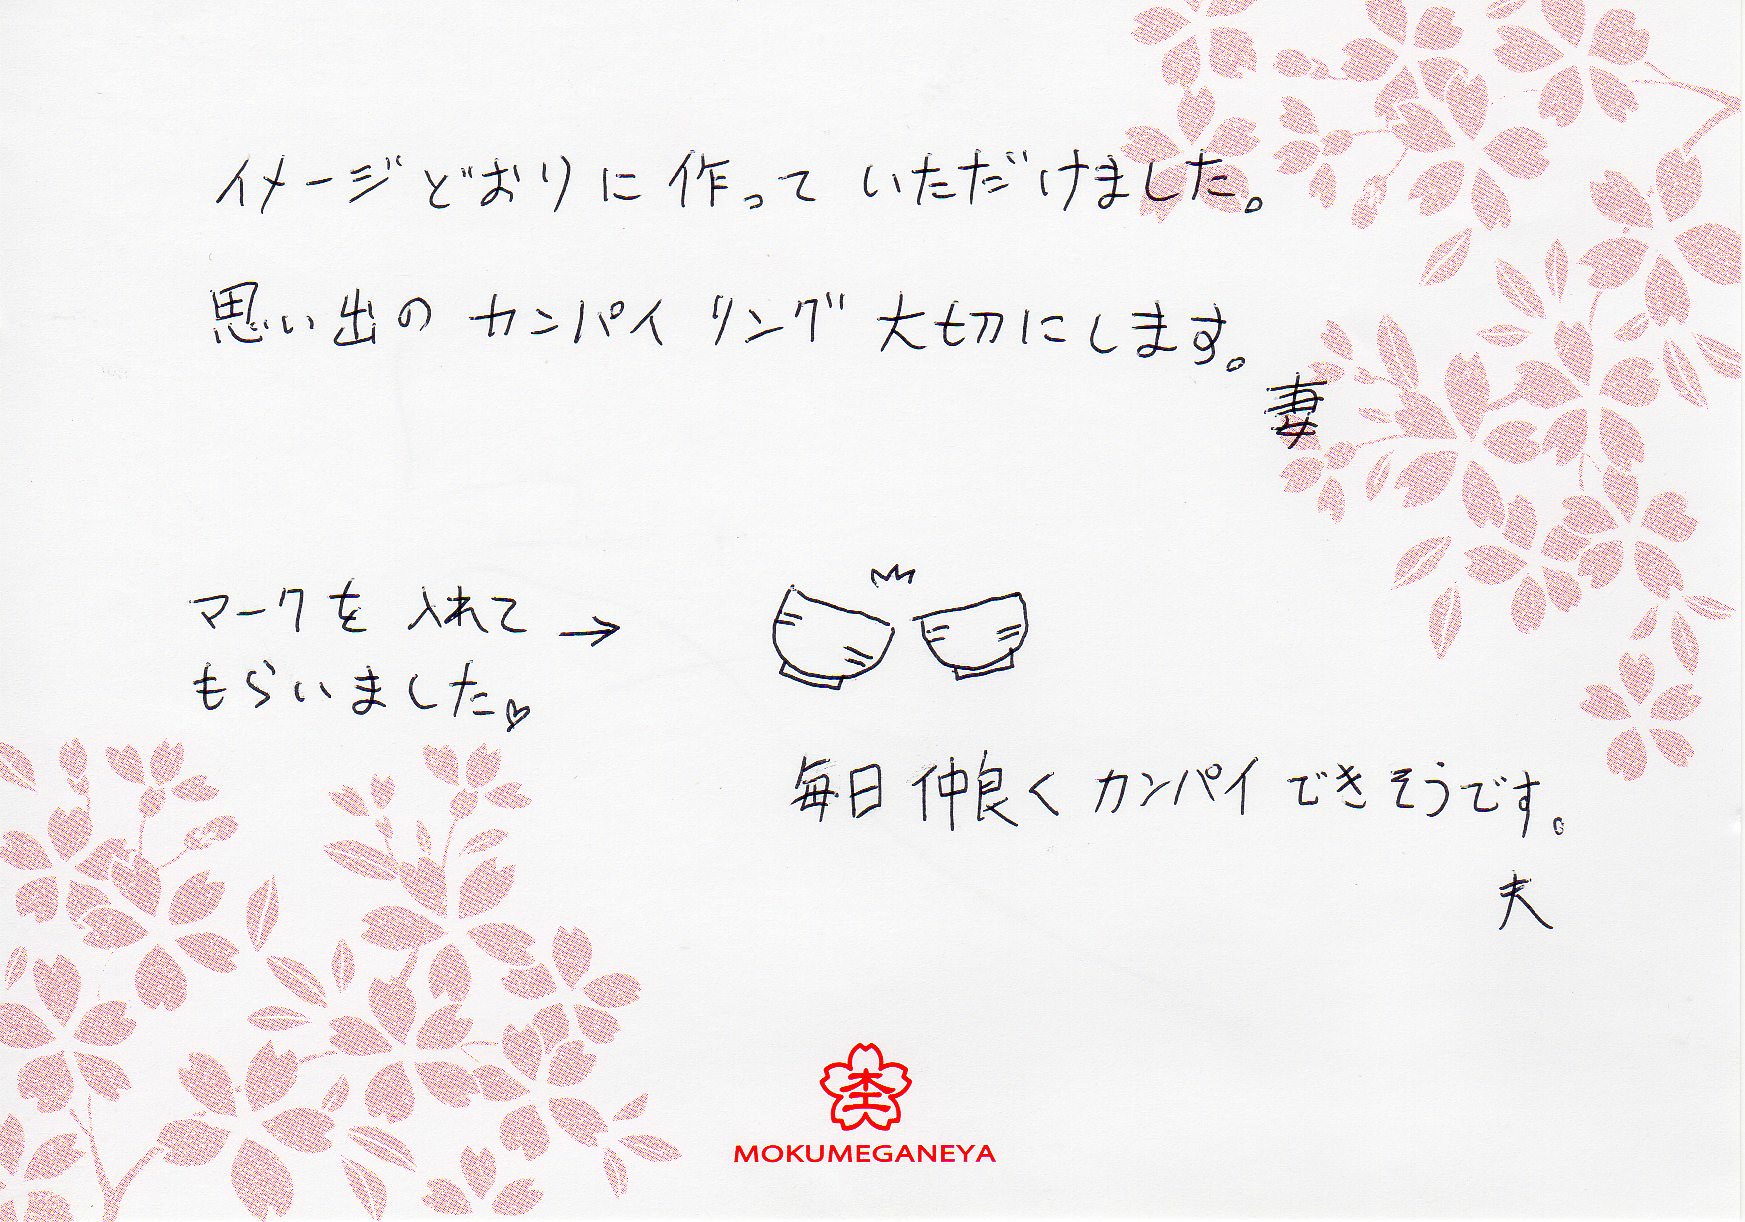 イメージどおりに作っていただけました。
思い出のカンパイリング大切にします。
妻
マークを入れて →
もらいました♡
毎日仲良くカンパイできそうです。
夫
杢
MOKUMEGANEYA